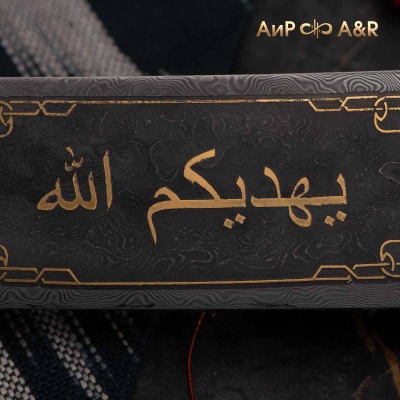 АиР A&R
يهديكم الله